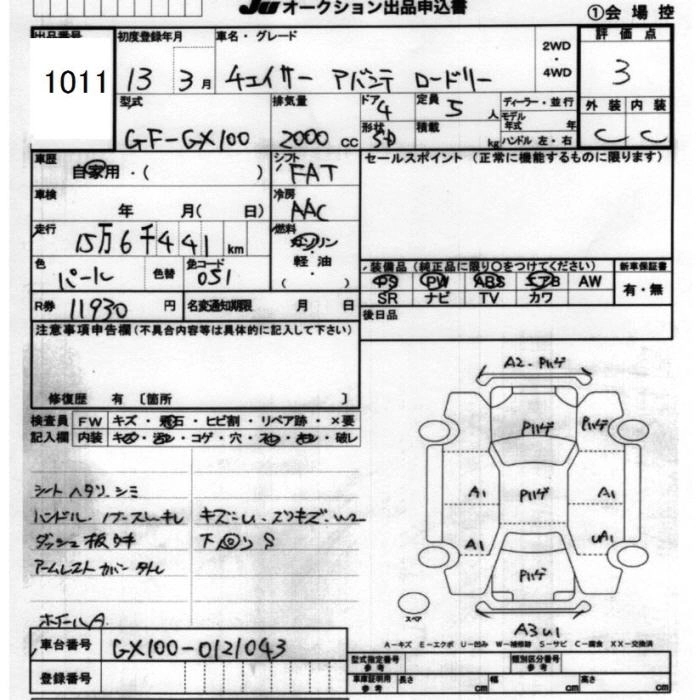 JU オークション出品申込書
①会場控
出品番号 初度登録年月 車名・グレード 評価点
1011 13 3月 チェイサー アバンテ ロードリー 2WD・4WD 3
型式 排気量 ドア 定員 ディーラー・並行 外装 内装
GF-GX100 2000cc 4 5人 モデル年式 年 C C
形状 SD 積載 kg ハンドル 左・右
車歴 シフト セールスポイント（正常に機能するものに限ります）
自家用・( ) FAT
車検 冷房
年 月( 日) AAC
走行 燃料
15万6千441km ガソリン
軽・油
( )
色 色替 色コード 装備品（純正品に限り○をつけてください） 新車保証書
パール 051 PS PW ABS エアB AW 有・無
SR ナビ TV カワ
R券 11930円 名変通知期限 月 日 後日品
注意事項申告欄(不具合内容等は具体的に記入して下さい)
修復歴 有〔箇所 〕
検査員 FW キズ・飛石・ヒビ割・リペア跡・×要
記入欄 内装 キズ・コゲ・穴・破レ
A2・Pハゲ
Pハゲ Pハゲ
A1 Pハゲ A1
A1 UA1
Pハゲ
スペア
A3U1
シート ヘタリ、シミ
ハンドル、
ダッシュ板
アームレスト カバー
ホイールA
キズ W2
下 S
A－キズ E－エクボ U－凹み W－補修跡 S－サビ C－腐食 XX－交換済
車台番号 GX100-0121043
登録番号
型式指定番号 参考 類別区分番号 参考
車庫証明用 参考 長さ cm 幅 cm 高さ cm